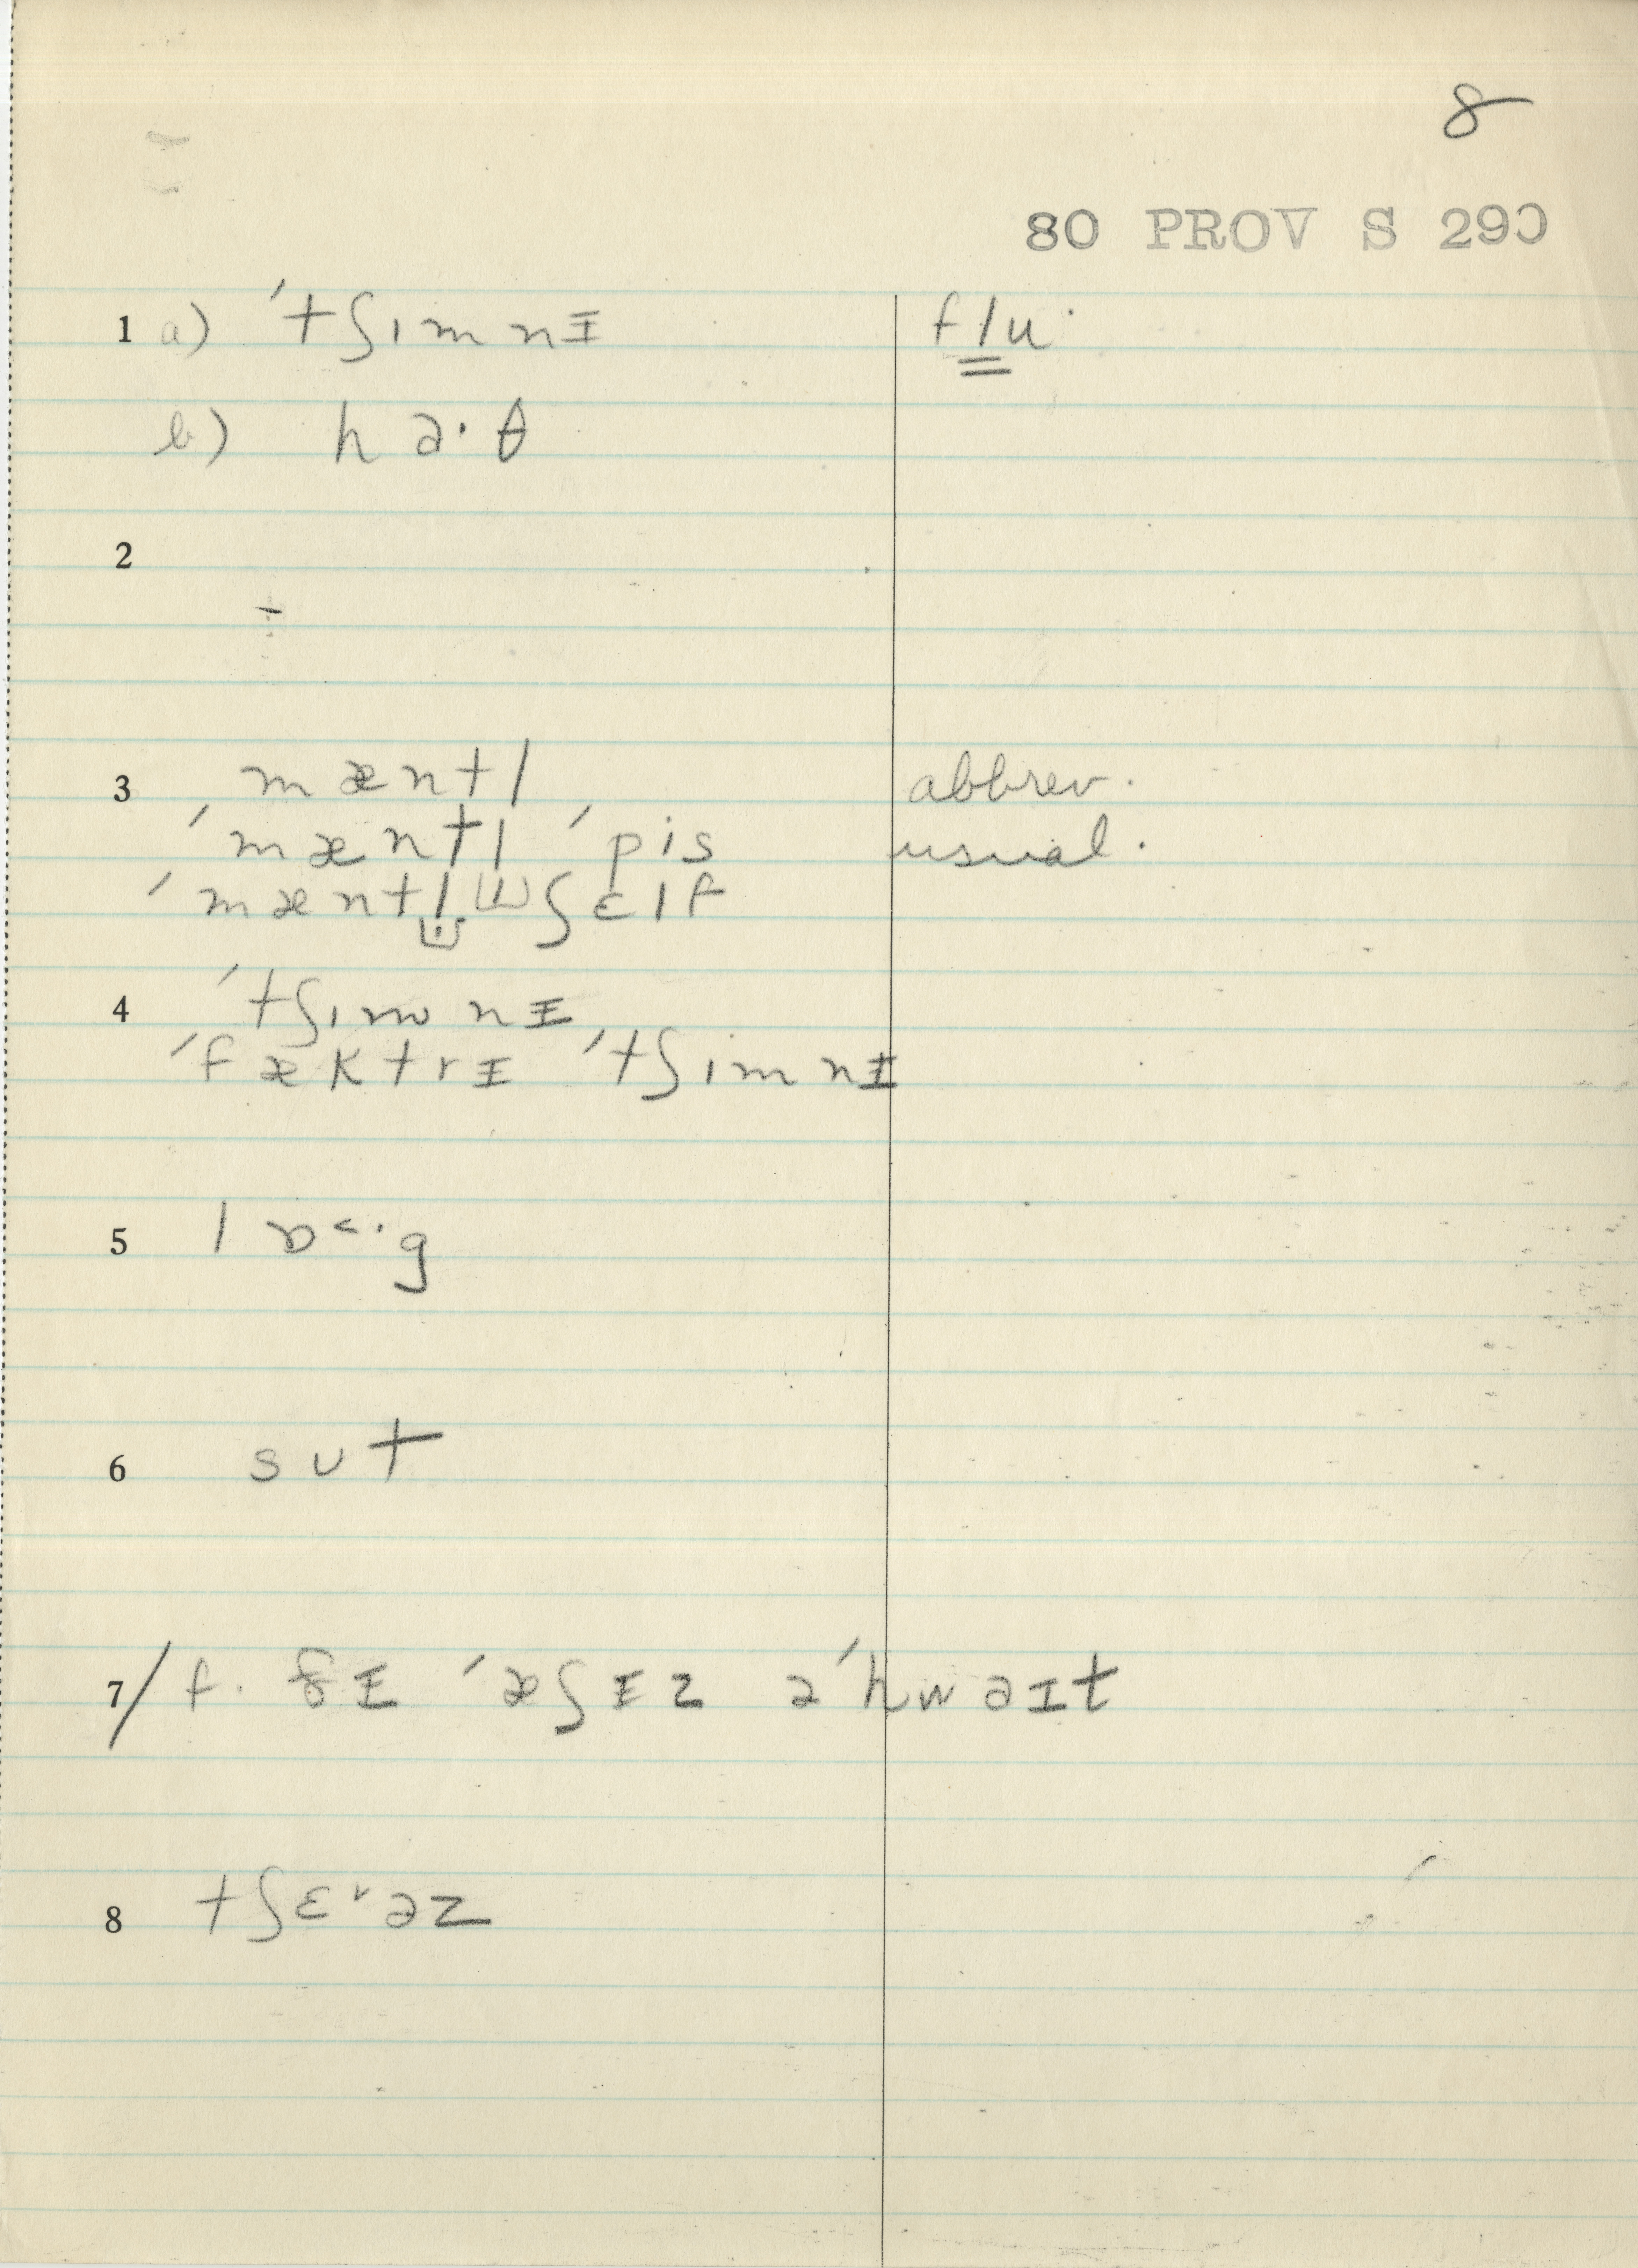 8
80 PROV S 290
1 a) ˈtʃimnɪ flu·
b) hɑ·θ
2
3 mæntl abbrev.
ˈmæntl ˈpis usual.
ˈmæntl ʃɛlf
4 ˈtʃimnɪ
ˈfæktrɪ ˈtʃimnɪ
5 lɒ˂·g
6 sut
7/ f. ðɪ ˈæʃɪz ə ˈhwaɪt
8 tʃɛrəz